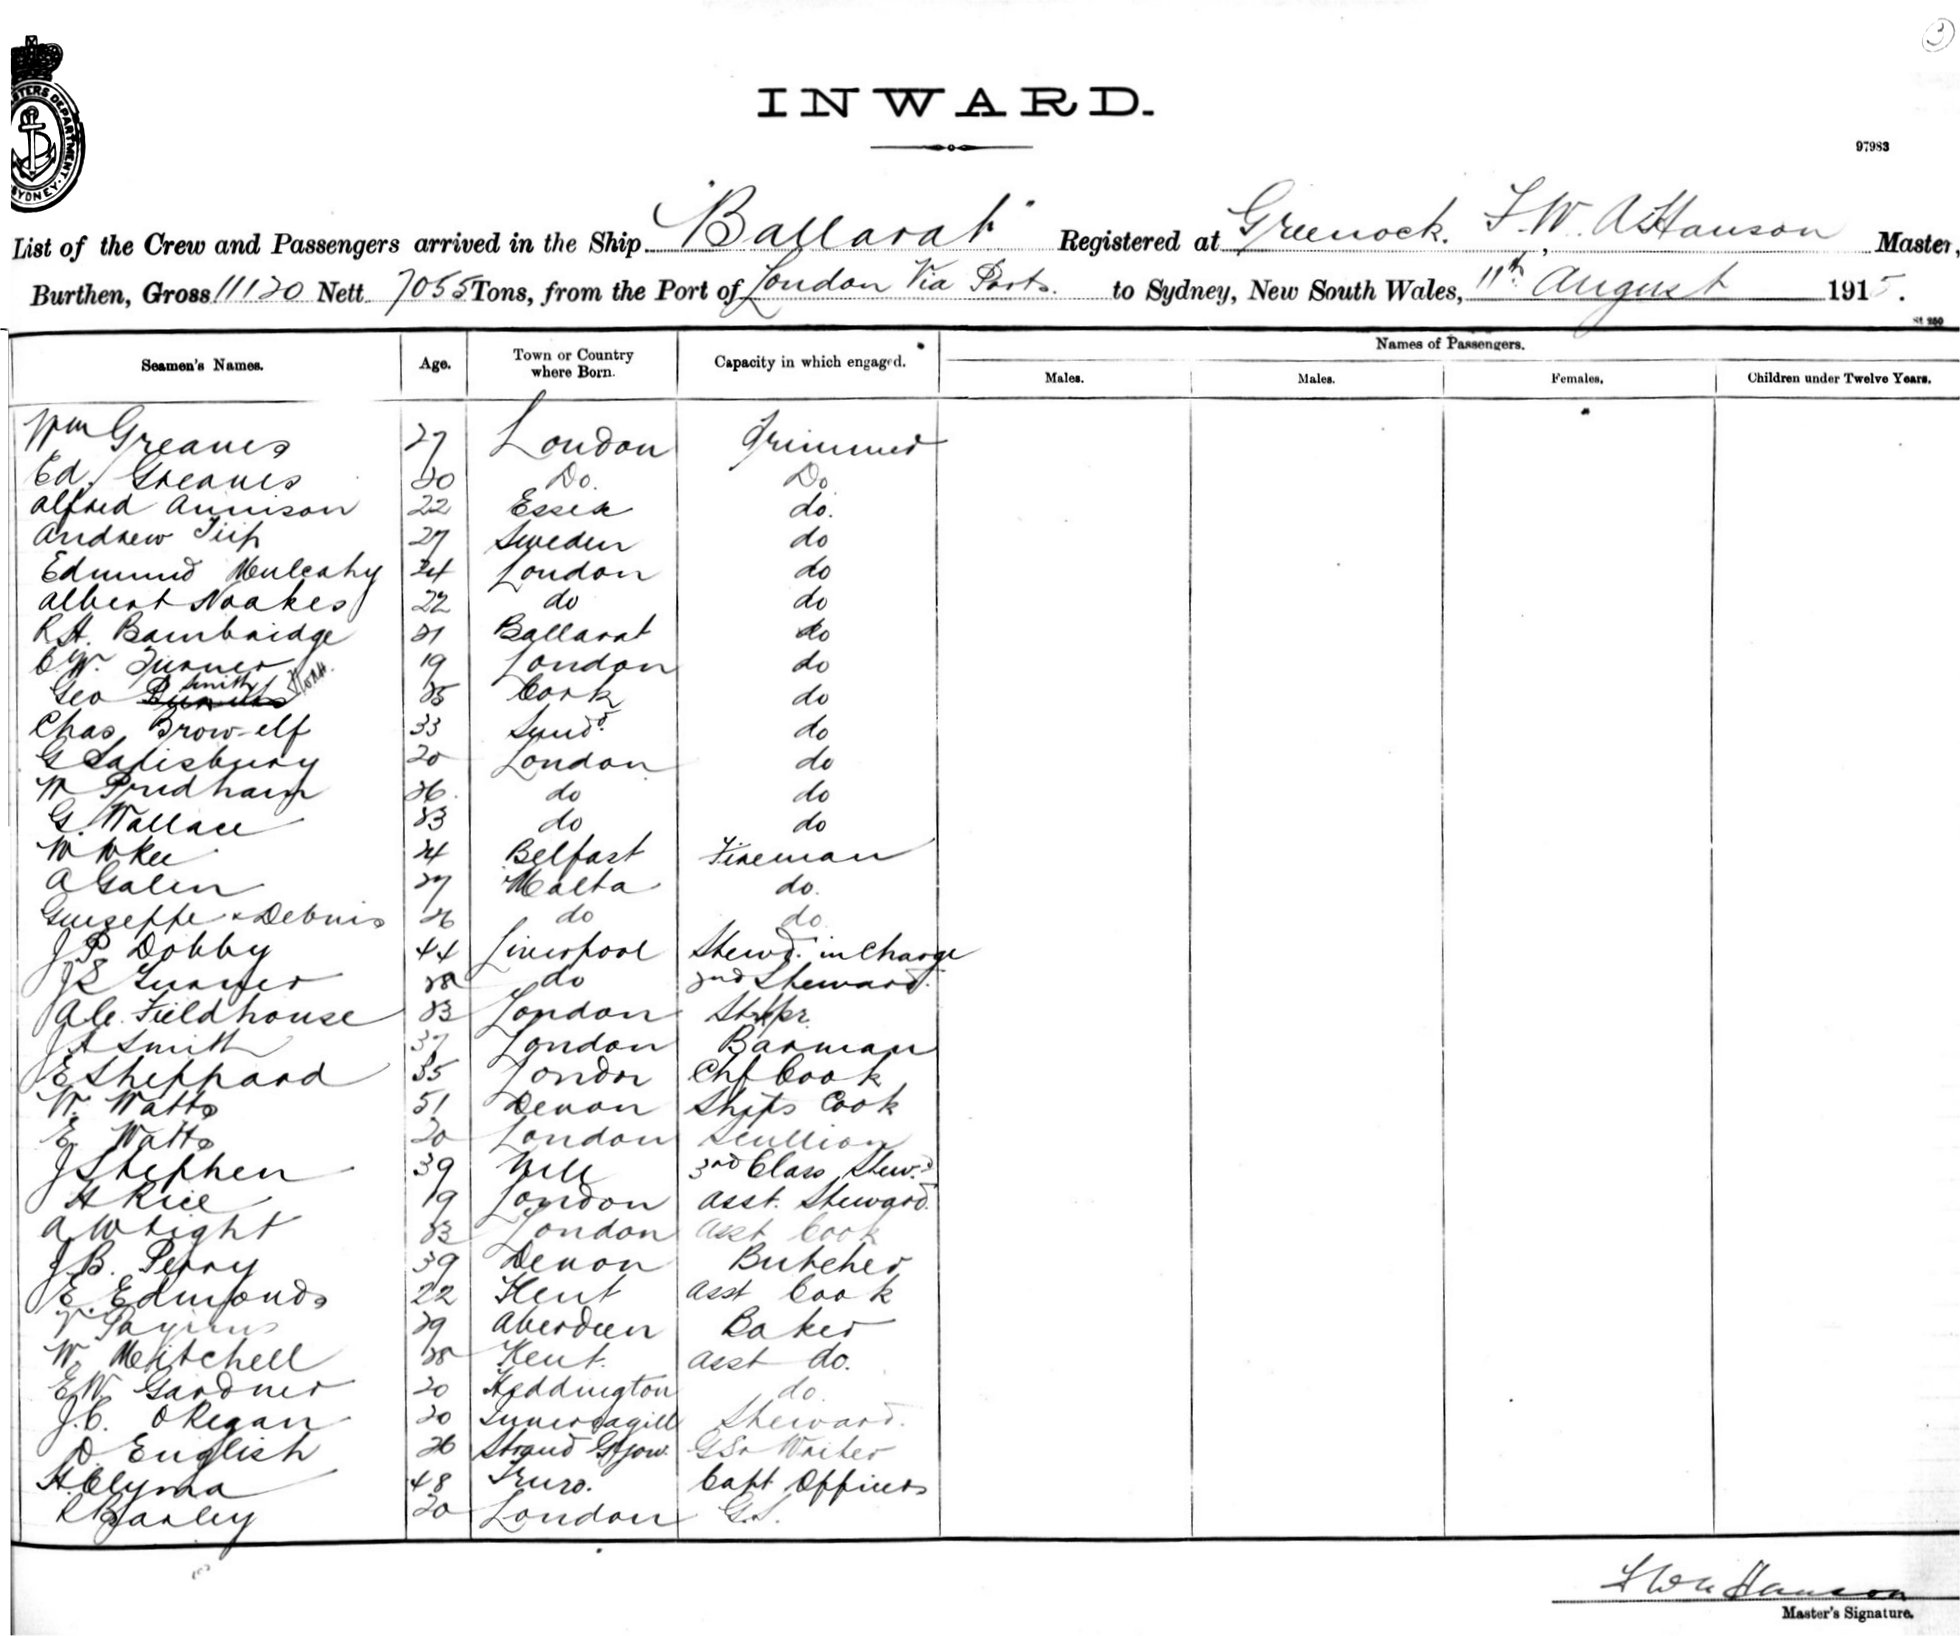 INWARD.
97983
List of the Crew and Passengers arrived in the Ship "Ballarat" Registered at Greenock. F. W. A. Hanson Master,
Burthen, Gross 11120 Nett 7055 Tons, from the Port of London Via Ports. to Sydney, New South Wales, 11th August 1915.
St 250
Seamen's Names. Age. Town or Country where Born. Capacity in which engaged. Names of Passengers.
Males. Males. Females. Children under Twelve Years.
Wm Greaves 27 London Trimmer
Ed. Greaves 20 Do. Do
Alfred Annison 22 Essex do.
Andrew 27 Sweden do
Edmund Mulcahy 24 London do
Albert Noakes 22 do do
R.H. Bambridge 21 Ballarat do
C.W. Turner 19 London do
Geo Smith 25 Cork do
Chas Brow-elf 33 Sund. do
G Salisbury 20 London do
W Pridham 26. do do
G. Wallace 23 do do
W 24 Belfast Fireman
A Galen 27 Malta do.
Guiseppe Debnis 26 do do.
J P Dobby 44 Liverpool Stewd. in Charge
J E Turner 28 do 2nd Steward.
A C. Fieldhouse 23 London
J A Smith 37 London Barman
E Sheppard 35 London Chf Cook
W. Watts 51 Devon Ships Cook
E. Watts 20 London Scullion
J Stephen 39 3rd Class Stewd
H Rice 19 London asst. Steward.
A Wright 23 London asst Cook
J.B. Perry 39 Devon Butcher
E. Edmonds 22 Kent asst Cook
29 Aberdeen Baker
W. Mitchell 28 Kent. asst do.
E.W. Gardner 20 Heddington do.
J.C. O Regan 20 Invercagill Steward.
D. English 26 Strand Writer
H. Clyma 48 Truro. Capt Officers
R Barley 20 London G.S.
F W A Hanson
Master's Signature.